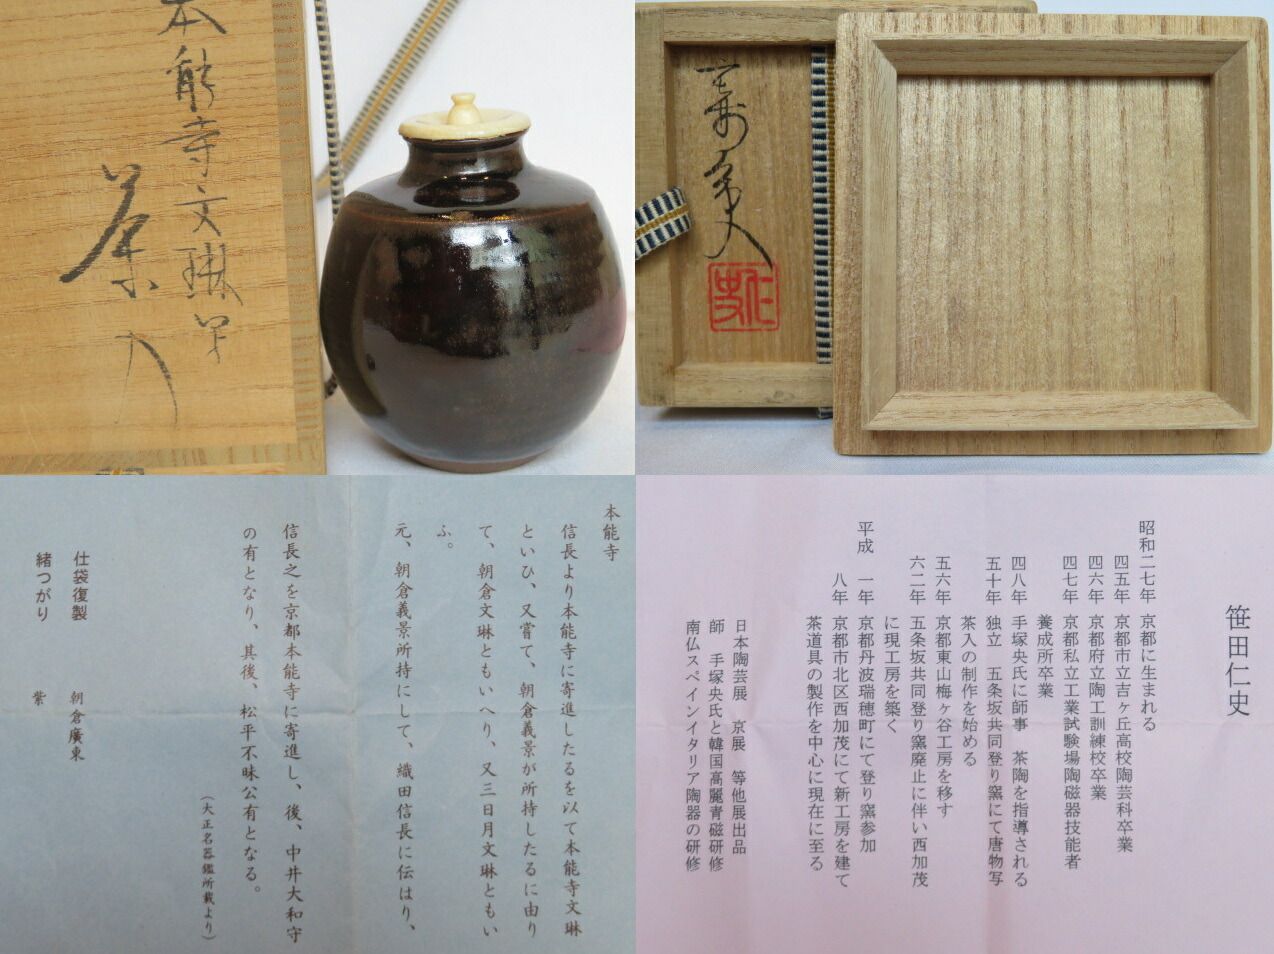 本能寺文琳写
茶入
本能寺
信長より本能寺に寄進したるを以て本能寺文琳
といひ、又嘗て、朝倉義景が所持したるに由り
て、朝倉文琳ともいへり、又三日月文琳ともい
ふ。
元、朝倉義景所持にして、織田信長に伝はり、
信長之を京都本能寺に寄進し、後、中井大和守
の有となり、其後、松平不昧公有となる。
(大正名器鑑所載より)
仕袋復製 朝倉廣東
緒つがり 紫
笹田仁史
昭和二七年 京都に生まれる
四五年 京都市立吉ヶ丘高校陶芸科卒業
四六年 京都府立陶工訓練校卒業
四七年 京都私立工業試験場陶磁器技能者
養成所卒業
四八年 手塚央氏に師事 茶陶を指導される
五十年 独立 五条坂共同登り窯にて唐物写
茶入の制作を始める
五六年 京都東山梅ヶ谷工房を移す
六二年 五条坂共同登り窯廃止に伴い西加茂
に現工房を築く
平成 一年 京都丹波瑞穂町にて登り窯参加
八年 京都市北区西加茂にて新工房を建て
茶道具の製作を中心に現在に至る
日本陶芸展 京展 等他展出品
師 手塚央氏と韓国高麗青磁研修
南仏スペインイタリア陶器の研修